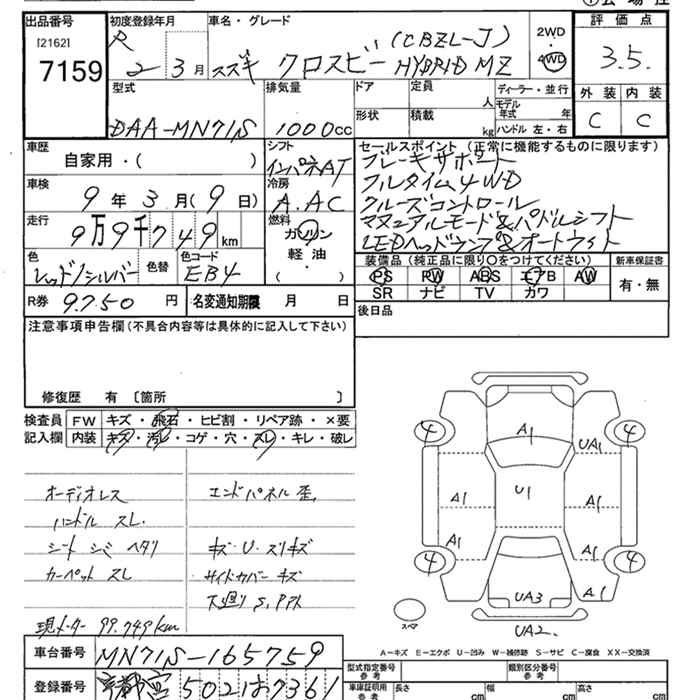 出品番号
[2162]
7159
初度登録年月
R 2 3月
車名・グレード
(CBZL-J)
スズキ クロスビー HYBRID MZ
2WD
4WD
評価点
3.5.
外装 内装
C C
型式
DAA-MN71S
排気量
1000cc
ドア
形状
定員
人
積載
kg
ディーラー・並行
モデル年式 年
ハンドル 左・右
車歴
自家用・( )
シフト
インパネAT
車検
9年3月(9日)
冷房
A.AC
走行
9万9千749km
燃料
ガソリン
軽油
( )
色
レッド/シルバー
色替
色コード
EB4
R券 9750円
名変通知期限 月 日
セールスポイント (正常に機能するものに限ります)
ブレーキサポート
フルタイム4WD
クルーズコントロール
マニュアルモード&パドルシフト
LEDヘッドランプ&オートライト
装備品(純正品に限り○をつけてください)
PS PW ABS エアB AW
SR ナビ TV カワ
新車保証書
有・無
後日品
注意事項申告欄(不具合内容等は具体的に記入して下さい)
修復歴 有 〔箇所 〕
検査員記入欄
FW キズ・飛石・ヒビ割・リペア跡・×要
内装 キズ・汚レ・コゲ・穴・スレ・キレ・破レ
オーディオレス
ハンドル スレ.
シート シミ ヘタリ
カーペット スレ
現メーター 99.749km
エンドパネル歪.
キズ・U・スリキズ
サイドカバー キズ
下廻り S.
4 4
A1
UA1
A1 U1 A1
A1 A1
4 4
A1
UA3
UA2.
スペア
A-キズ E-エクボ U-凹み W-補修跡 S-サビ C-腐食 XX-交換済
車台番号 MN71S-165759
登録番号 京都 502 は 7361
型式指定番号
参考
類別区分番号
参考
車庫証明用
参考
長さ cm
幅 cm
高さ cm